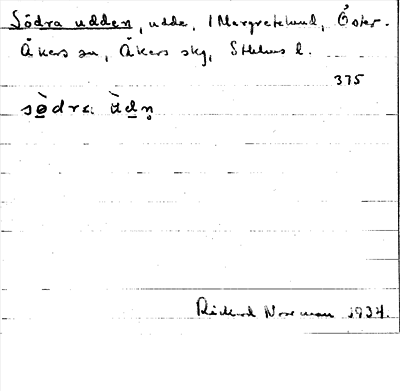 Södra udden, udde, 1 Margretelund, Öster-
Åkers sn, Åkers skg, Sthlms l.
375
sö̀drɐ ùdn̥
Rickard Norrman 1934.